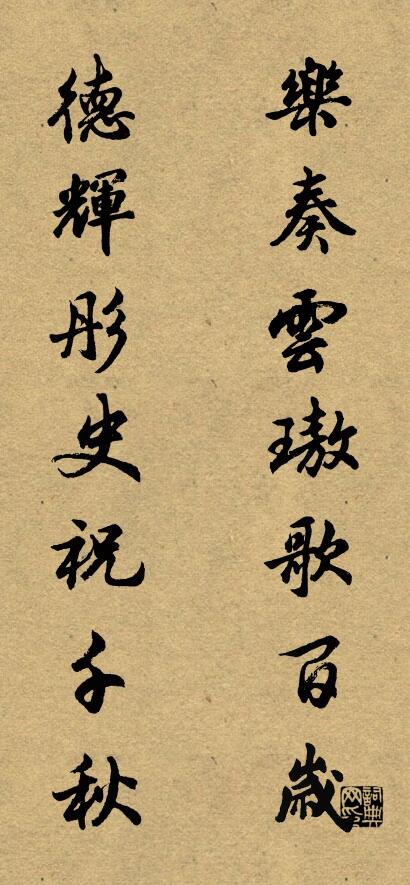 樂奏雲璈歌百歲
德輝彤史祝千秋
詞典網